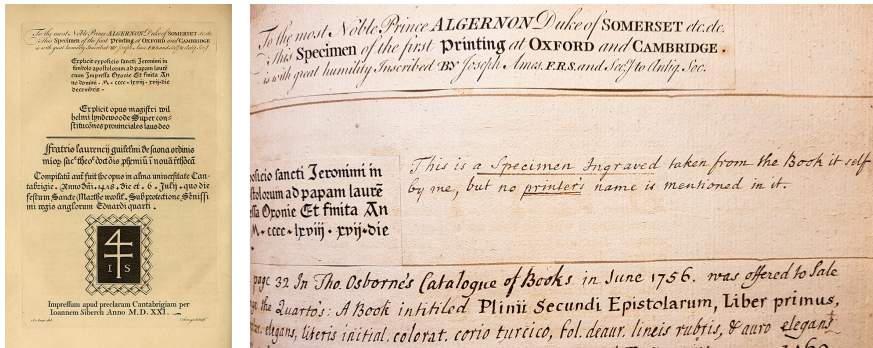 To the most Noble Prince ALGERNON Duke of SOMERSET &c. &c.
This Specimen of the first Printing at OXFORD and CAMBRIDGE
is with great humility Inscribed BY Joseph Ames F.R.S. and Secy. to
Explicit exposicio sancti Jeronimi in
simbolo apostolorum ad papam laurē
cium Impressa Oxonie Et finita An
no domini . M . cccc . lxviij . xvij . die
decembris .
Explicit opus magistri wil
helmi lyndewoode Super con-
stituciones prouinciales laus deo
Fratris laurencij guilelmi de saona ordinis
Compilatū aut fuit hoc opus in alma uniuersitate Can-
tabrigie . Anno dñi . 1478 . die et . 6 . Julij . quo die
festum Sancte Marthe Sub protectione
regis anglorum Eduardi quarti .
I S
Impressum apud præclaram Cantabrigiam per
Ioannem Siberch Anno M.D.XXI.
To the most Noble Prince ALGERNON Duke of SOMERSET &c. &c.
This Specimen of the first Printing at OXFORD and CAMBRIDGE .
is with great humility Inscribed BY Joseph Ames. F.R.S. and Secy. to Antiq. Soc.
posicio sancti Jeronimi in
stolorum ad papam laurē
ssa Oxonie Et finita An
M . cccc . lxviij . xvij . die
This is a Specimen Ingraved taken from the Book it self
by me, but no printer's name is mentioned in it.
page 32 In Tho. Osborne's Catalogue of Books in June 1756. was offer'd to Sale
the Quarto's: A Book intitled Plinii Secundi Epistolarum, Liber primus,
elegans, literis initial. colorat. corio turcico, fol. deaur. lineis rubris, & auro elegans